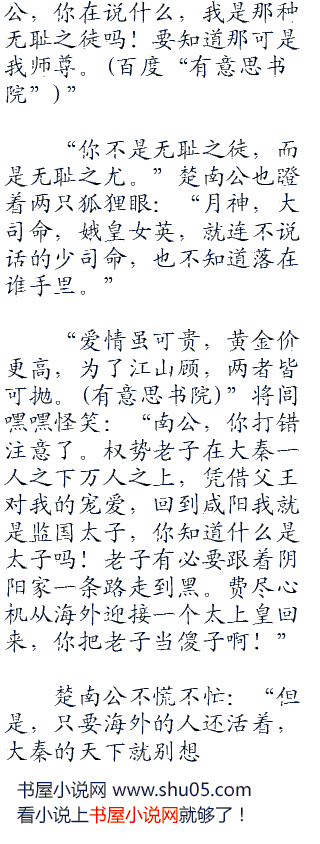 公，你在说什么，我是那种
无耻之徒吗！要知道那可是
我师尊。(百度“有意思书
院”)”
“你不是无耻之徒，而
是无耻之尤。”楚南公也瞪
着两只狐狸眼：“月神，大
司命，娥皇女英，就连不说
话的少司命，也不知道落在
谁手里。”
“爱情虽可贵，黄金价
更高，为了江山顾，两者皆
可抛。(有意思书院)”将闾
嘿嘿怪笑：“南公，你打错
注意了。权势老子在大秦一
人之下万人之上，凭借父王
对我的宠爱，回到咸阳我就
是监国太子，你知道什么是
太子吗！老子有必要跟着阴
阳家一条路走到黑。费尽心
机从海外迎接一个太上皇回
来，你把老子当傻子啊！”
楚南公不慌不忙：“但
是，只要海外的人还活着，
大秦的天下就别想
书屋小说网 www.shu05.com
看小说上书屋小说网就够了！